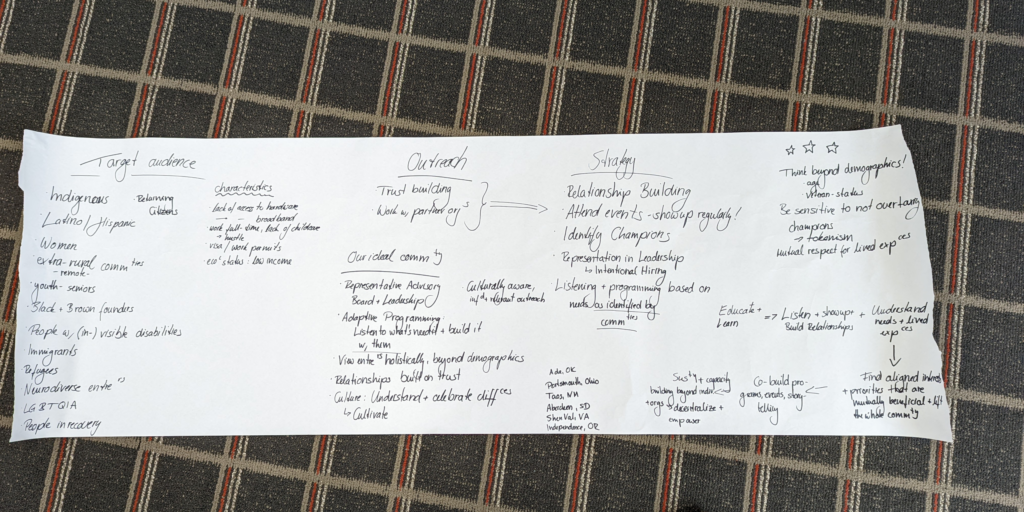 Target audience
Indigenous
· Latino/Hispanic
· Women
· extra-rural comm ties
- remote -
· youth - seniors
· Black + Brown founders
· People w/ (in-) visible disabilities
Immigrants
Refugees
Neurodiverse entre rs
LGBTQIA
People in recovery
· Returning
Citizens
characteristics
· lack of access to hardware
broadband
· work full-time, lack of childcare
· visa/work permits
· eco' status - low income
Outreach
Trust building
· Work w/ partner org s
Our ideal comm ty
· Representative Advisory
Board + Leadership
Culturally aware,
· Adaptive Programming
Listen to what's needed + build it
w/ them
· View entre rs holistically, beyond demographics
· Relationships built on trust
· Culture: Understand + celebrate diff ces
↳ Cultivate
Strategy
Relationship Building
· Attend events - show up regularly!
· Identify Champions
· Representation in Leadership
↳ Intentional Hiring
· Listening + programming based on
needs as identified by
comm ties
Ada, OK
Portsmouth, Ohio
Taos, NM
Aberdeen, SD
Shen Val, VA
Independence, OR
☆ ☆ ☆
Think beyond demographics!
age
urban-status
Be sensitive to not overtaxing
champions
→ tokenism
Mutual respect for lived exp ces
Educate +
Learn
=> Listen + show up +
Build Relationships
Understand
needs + lived
exp ces
Find aligned
+ priorities that are
mutually beneficial + lift
the whole comm ty
Co-build pro-
grams, events, story-
telling
Sus ty + capacity
building beyond
+ orgs → decentralize +
empower